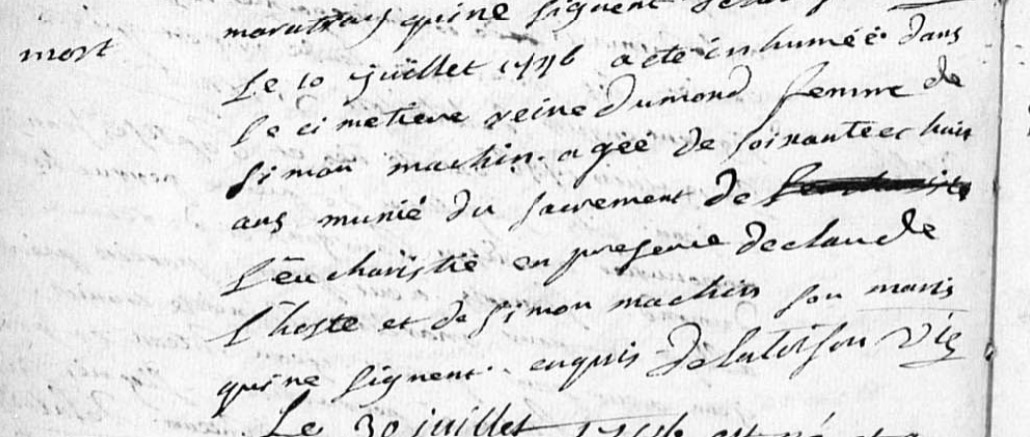 qui ne signent
mort
Le 10 juillet 1746 a ete inhumée dans
le cimetiere reine Dumond femme de
simon machin agée de soixante et huit
ans munie du sacrement de
l'eucharistie en presence de claude
l'hoste et de simon machin son maris
qui ne signent enquis
Le 30 juillet 1746 est né et